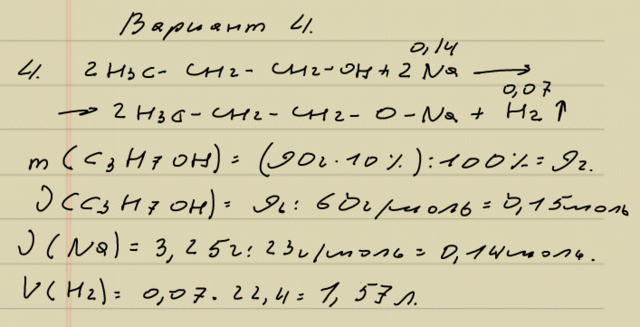 Вариант 4.
0,14
4. 2H3C-CH2-CH2-OH+2Na ⟶
0,07
⟶ 2H3C-CH2-CH2-O-Na + H2↑
m(C3H7OH) = (90г·10%):100% = 9г.
ν(C3H7OH) = 9г: 60г/моль = 0,15моль
ν(Na) = 3,25г: 23г/моль = 0,14моль.
V(H2) = 0,07·22,4 = 1,57л.